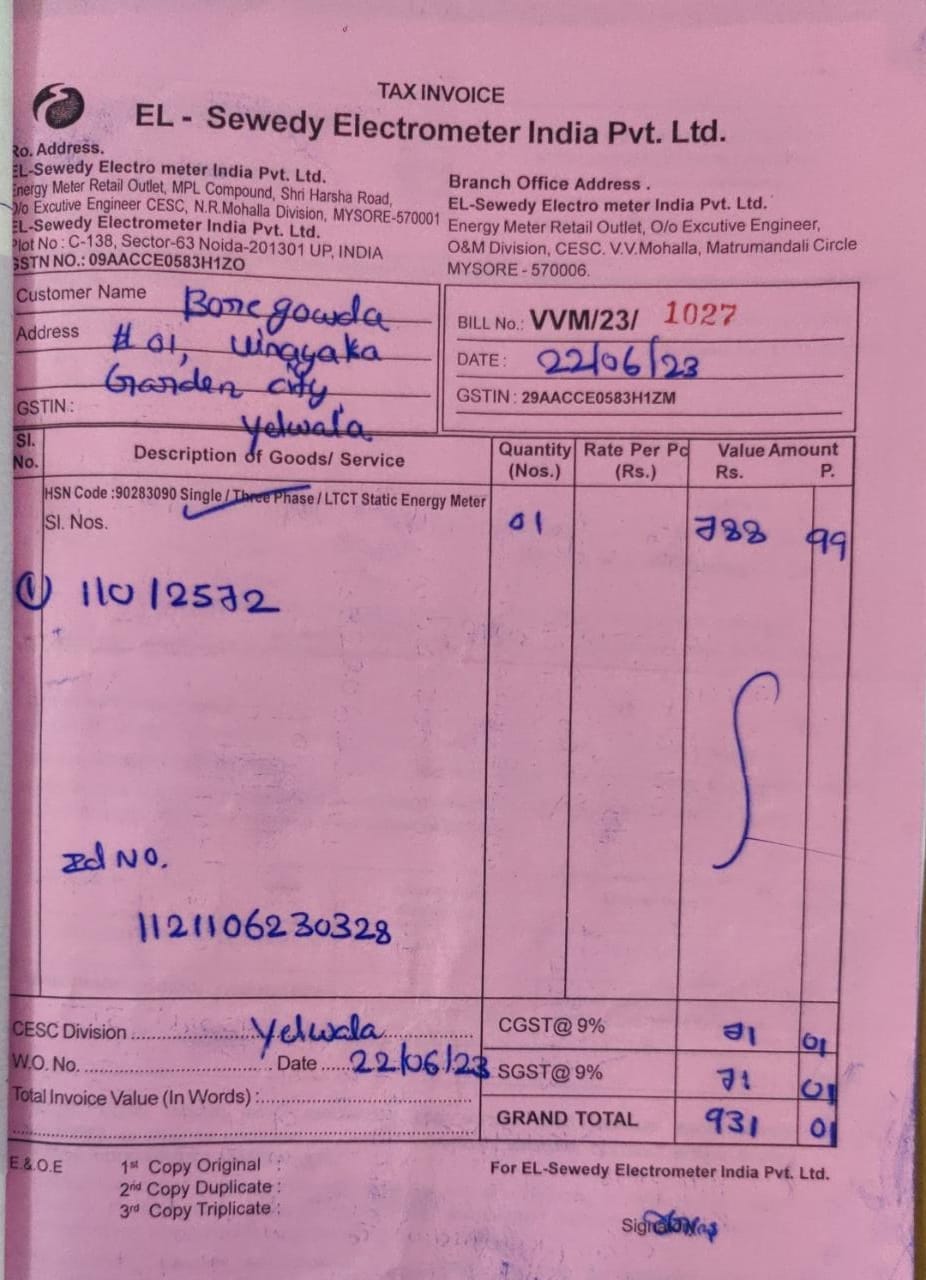 TAX INVOICE
EL - Sewedy Electrometer India Pvt. Ltd.
Ro. Address.
EL-Sewedy Electro meter India Pvt. Ltd.
Energy Meter Retail Outlet, MPL Compound, Shri Harsha Road,
O/o Excutive Engineer CESC, N.R.Mohalla Division, MYSORE-570001
EL-Sewedy Electrometer India Pvt. Ltd.
Plot No : C-138, Sector-63 Noida-201301 UP, INDIA
GSTN NO.: 09AACCE0583H1ZO
Branch Office Address .
EL-Sewedy Electro meter India Pvt. Ltd.
Energy Meter Retail Outlet, O/o Excutive Engineer,
O&M Division, CESC. V.V.Mohalla, Matrumandali Circle
MYSORE - 570006.
Customer Name Boregowda
Address # 01, Vinayaka
Garden city,
GSTIN :
Yelwala
BILL No.: VVM/23/ 1027
DATE : 22/06/23
GSTIN : 29AACCE0583H1ZM
Sl. No. Description of Goods/ Service Quantity (Nos.) Rate Per Pc (Rs.) Value Amount Rs. P.
HSN Code :90283090 Single / Three Phase / LTCT Static Energy Meter
Sl. Nos. 01 788 99
① 11012572
Id NO.
1121106230328
CESC Division Yelwala
W.O. No. Date 22/06/23
Total Invoice Value (In Words) :
CGST@ 9% 71 01
SGST@ 9% 71 01
GRAND TOTAL 931 01
E.&.O.E 1st Copy Original :
2nd Copy Duplicate :
3rd Copy Triplicate :
For EL-Sewedy Electrometer India Pvt. Ltd.